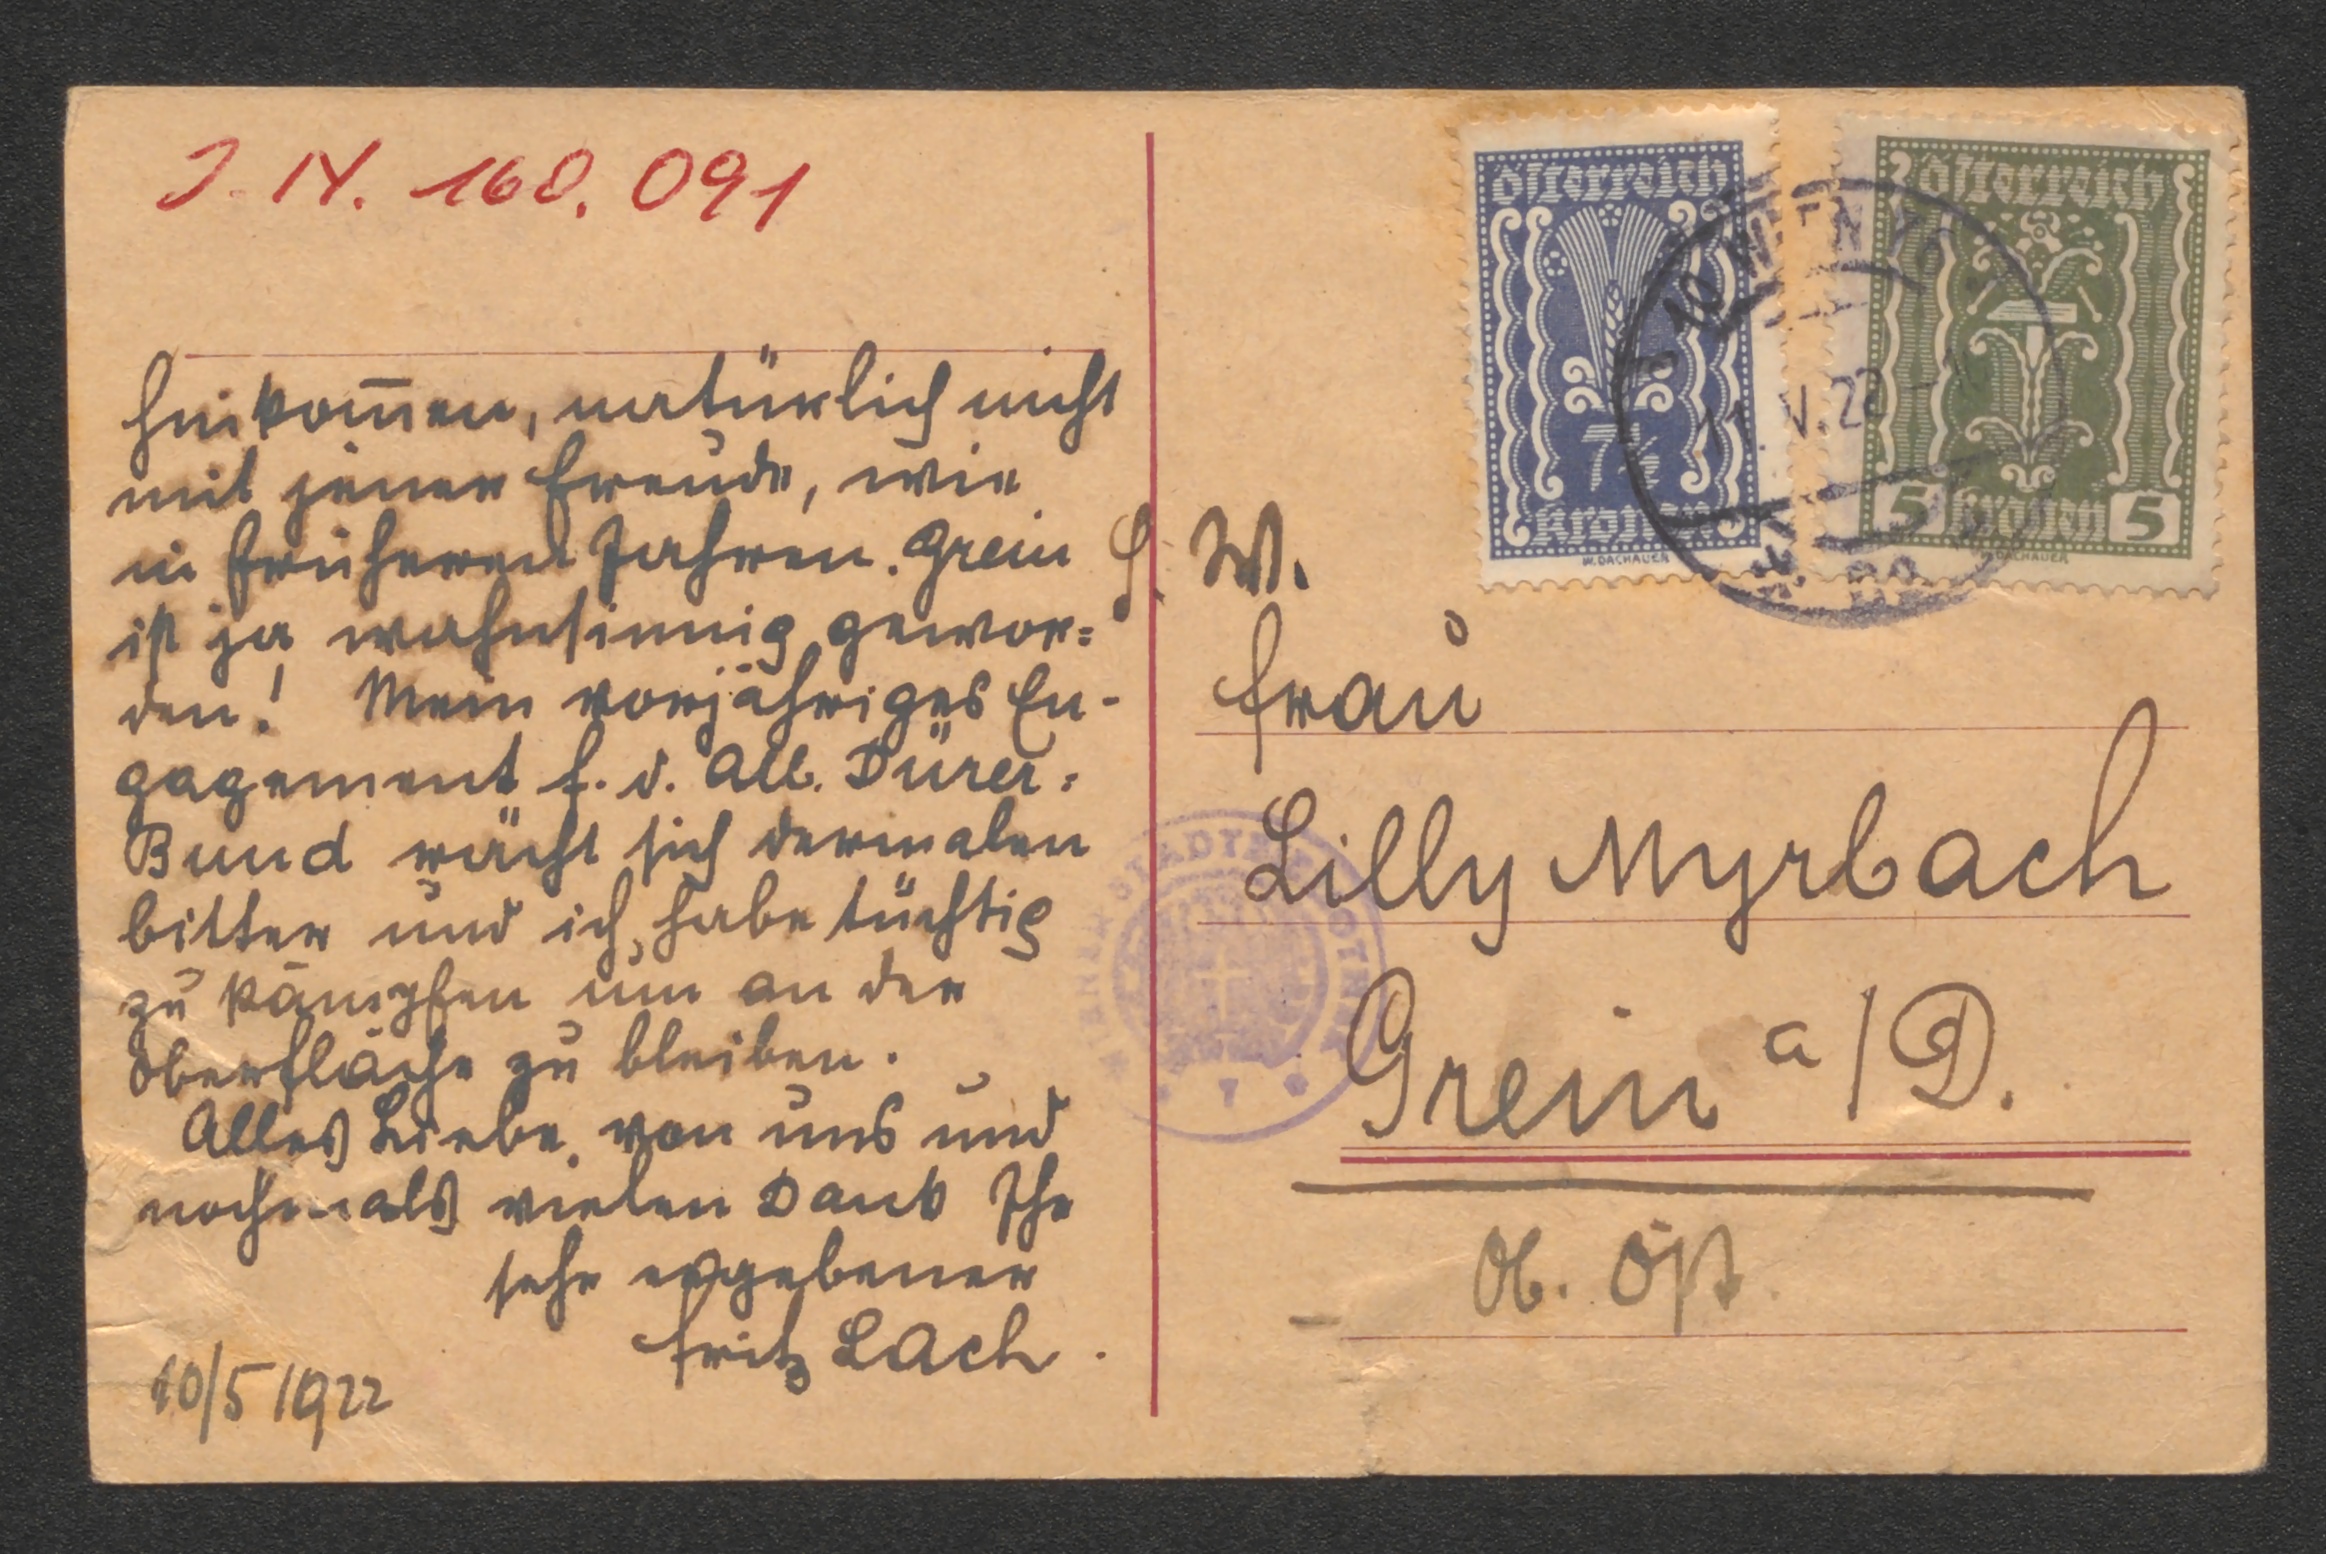 J. N. 160.091
hinkom̅en, natürlich nicht
mit jener Freude, wie
in früheren Jahren. Grein
ist ja wahnsinnig gewor=
den! Mein vorjähriges En-
gagement f. d. Alb. Dürer=
Bund rächt sich dermalen
bitter und ich habe tüchtig
zu kämpfen um an der
Oberfläche zu bleiben.
Alles Liebe von uns und
nochmals vielen Dank Ihr
sehr ergebener
Fritz Lach.
10/5 1922
österreich
7½
kronen
W. DACHAUER
österreich
5 kronen 5
DACHAUER
WIEN
11. V. 22
S. W.
Frau
Lilly Myrbach
Grein a/D.
Ob. Öst.
WIENER STADTBIBLIOTHEK